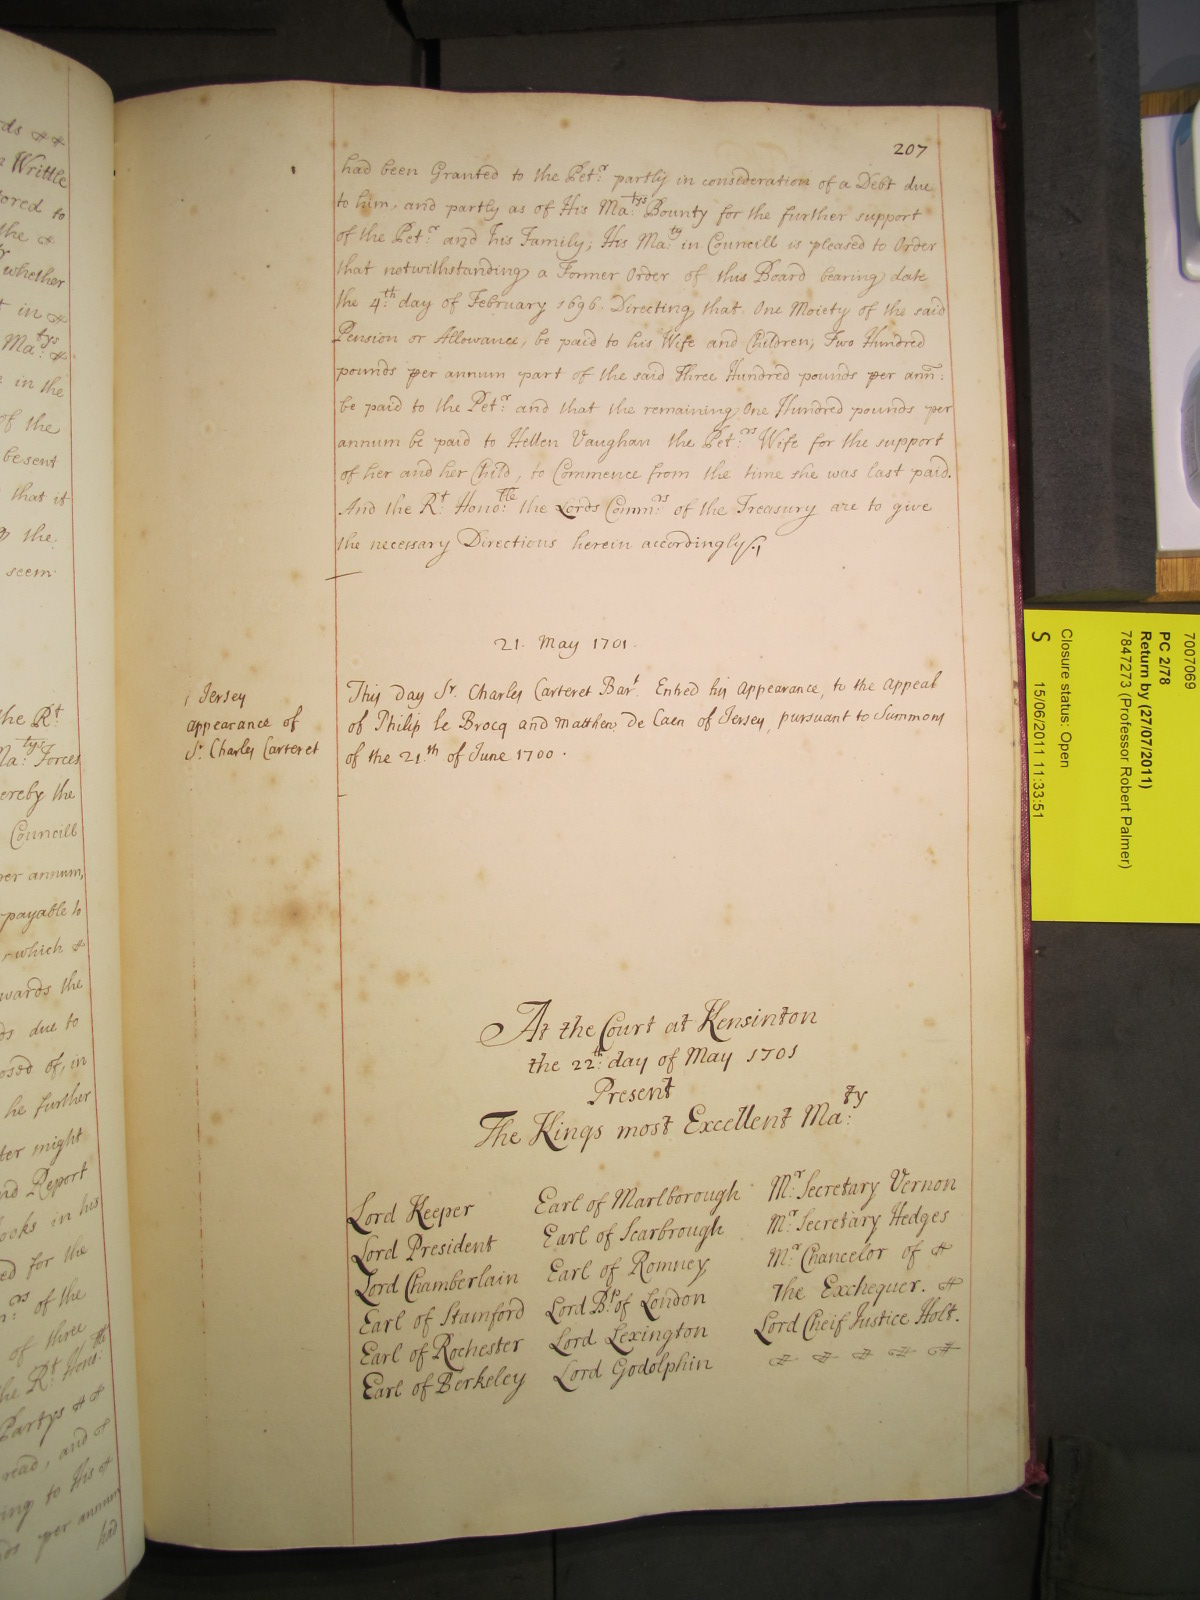 207
had been Granted to the Petr. partly in consederation of a Debt due
to him, and partly as of His Ma:tys Bounty for the further support
of the Petr. and his Family; His Ma:ty in Councill is pleased to Order
that notwithstanding a Former Order of this Board bearing date
the 4:th day of February 1696. Directing that One Moiety of the said
Pension or Allowance, be paid to his Wife and Children; Two Hundred
pounds per annum part of the said Three Hundred pounds per ann:
be paid to the Petr. and that the remaining One Hundred pounds per
annum be paid to Hellen Vaughan the Pet:rs Wife for the support
of her and her Child, to Commence from the time she was last paid.
And the Rt. Hono:ble the Lords Commrs. of the Treasury are to give
the necessary Directions herein accordingly
21. May 1701.
Jersey
appearance of
Sr. Charles Carteret
This day Sr. Charles Carteret Bart. Entred his Appearance, to the Appeal
of Philip le Brocq and Matthew de Caen of Jersey, pursuant to Summons
of the 21.th of June 1700.
At the Court at Kensinton
the 22:th day of May 1701
Present
The Kings most Excellent Ma:ty
Lord Keeper
Lord President
Lord Chamberlain
Earl of Stamford
Earl of Rochester
Earl of Berkeley
Earl of Marlborough
Earl of Scarbrough
Earl of Romney
Lord Bp. of London
Lord Lexington
Lord Godolphin
Mr. Secretary Vernon
Mr. Secretary Hedges
Mr. Chancelor of
The Exchequer.
Lord Cheif Justice Holt.
ds
Writtle
ored to
the
whether
t in
Ma:tys
in the
of the
be sent
that it
the
seem
the Rt
Ma:tys Forces
ereby the
Councill
per annum,
payable to
which
wards the
ds due to
osed of, in
he further
ter might
nd Report
ooks in his
ed for the
rs of the
of three
the Rt. Hono:ble
Partys
read, and
ing to His
ds per annum
had
7007069
PC 2/78
Return by (27/07/2011)
7847273 (Professor Robert Palmer)
Closure status: Open
S 15/06/2011 11:33:51